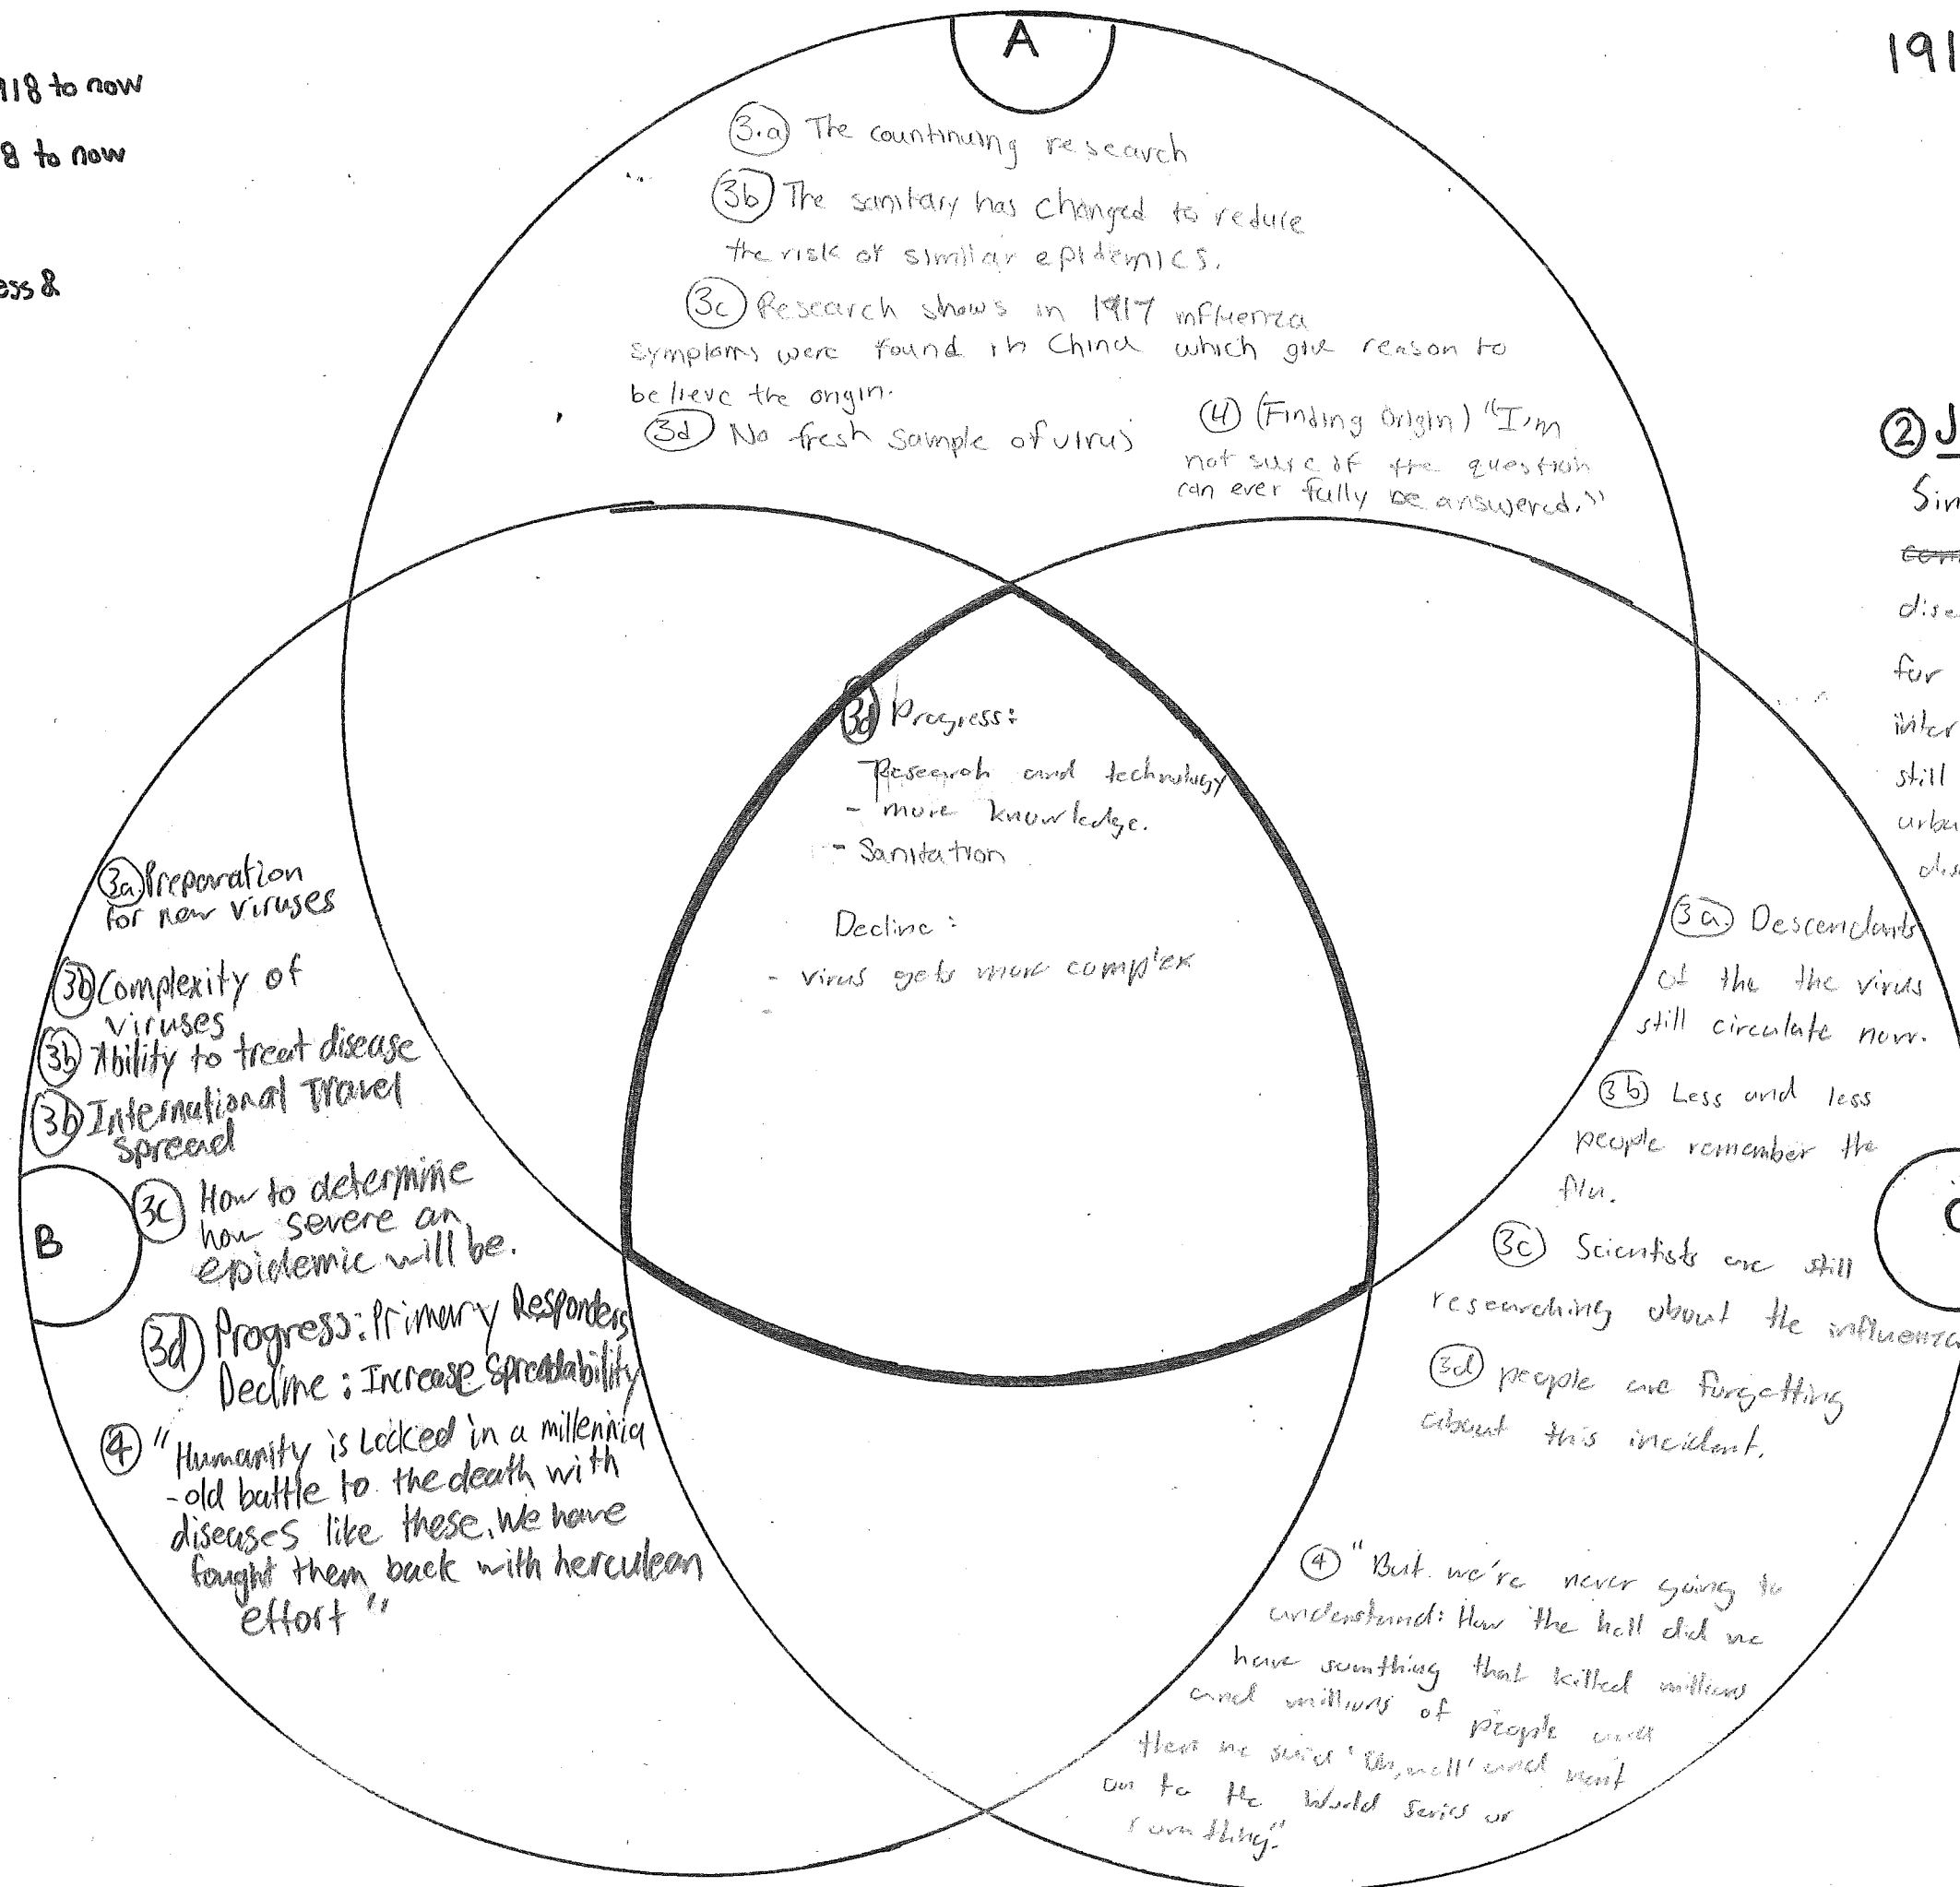 118 to now
8 to now
ess &
A
191
3.a The countinuing research
3b The sanitary has changed to reduce
the risk of similar epidemics.
3c Research shows in 1917 influenza
symptoms were found in China which give reason to
believe the origin.
3d No fresh sample of virus
4 (Finding Origin) "I'm
not sure if the question
can ever fully be answered."
2 J
Sin
dise
for
inter
still
urba
dis
3d Progress:
Research and technology
- more knowledge.
- Sanitation
Decline:
- virus gets more complex
-
3a. Preparation
for new viruses
3b Complexity of
viruses
3b Ability to treat disease
3b International Travel
spread
B
3c How to determine
how severe an
epidemic will be.
3d Progress: Primary Responders
Decline: Increase Spreadability
4 "Humanity is Locked in a millennia
-old battle to the death with
diseases like these. We have
fought them back with herculean
effort"
3a. Descendants
of the the virus
still circulate now.
3b Less and less
people remember the
flu.
C
3c Scientists are still
researching about the influenza
3d people are forgetting
about this incident.
4 "But we're never going to
understand: How the hell did we
have somthing that killed millions
and millions of people and
then we said 'Oh, well' and went
on to the World Series or
somthing."